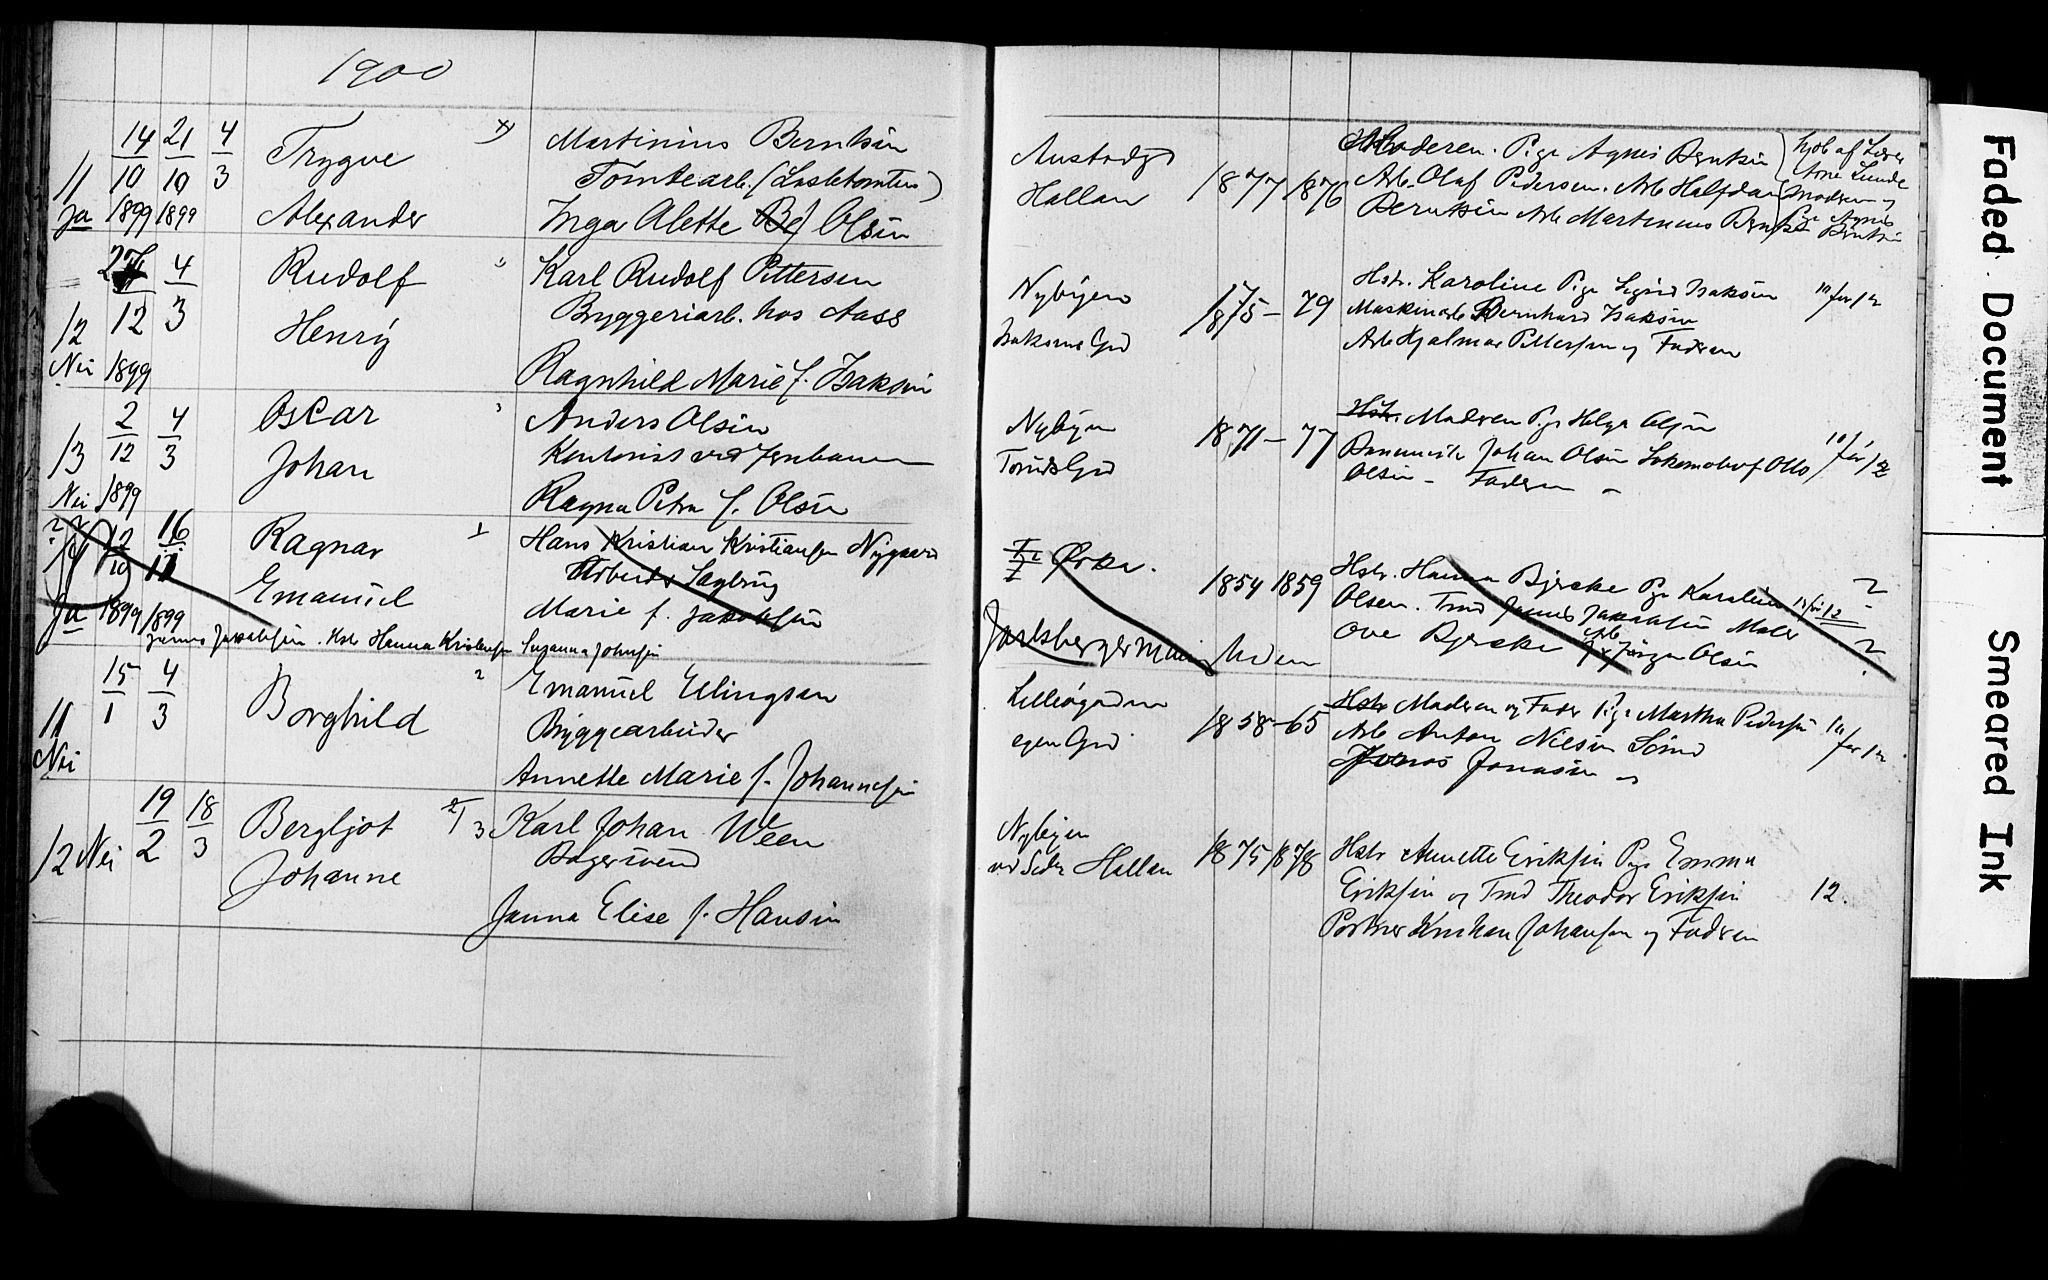 1900
14 21 4
10 10 3
11
Ja 1899 1899
Trygve
Alexander
Martinius Berntsen
Tomtearb. (Lastetomten)
Inga Alette f. Olsen
Austadgt
Hallan
1877 1876
Moderen. Pige Agnes Berntsen
Arb. Olaf Pedersen. Arb Halfdan
Berntsen Arb Martinius Berntsen
hjdb af Lærer
Arne Lunde
Moderen og
Pige Agnes
Berntsen
27 4
12 3
12
Nei 1899
Rudolf
Henry
Karl Rudolf Pettersen
Bryggeriarb. hos Aass
Ragnhild Marie f. Isaksen
Nybyen
Isaksens Grd
1875 - 79
Hstr. Karoline Pige Sigrid Isaksen
Maskinarb Bernhard Isaksen
Arb Hjalmar Pettersen og Faderen
10 for 12
2 4
12 3
13
Nei 1899
Oscar
Johan
Anders Olsen
Kontorist ved Jernbanen
Ragna Petra f. Olsen
Nybyen
Grd
1871 - 77
Hstr. Moderen Pige Helga Olsen
Johan Olsen Lokomotivf Otto
Olsen - Faderen -
10 for 12
? 12 16
10 11
14
Ja 1899 1899
Ragnar
Emanuel
Hans Kristian Kristiansen Nygaard
Arbeider Sagbrug
Marie f. Jakobsen
James Jakobsen. Hstr Hanna Kristensen Susanna Johnsen
Ørka.
Jarlsberger
1854 1859
Hstr. Hanna Bjerke Pige Karoline
Olsen. Tmd James Jakobsen Maler
Ove Bjerke Jørgen Olsen
13 for 12
?
?
15 4
1 3
11
Nei
Borghild
Emanuel Ellingsen
Byggearbeider
Annette Marie f. Johannesen
egen Grd
1858 - 65
Hstr Moderen og Fader Pige Martha Pedersen
Arb Anton Nilsen Sømd
Jonas Jonasen
10 for 12
19 18
2 3
12 Nei
Bergljot
Johanne
2/3
Karl Johan Ween
Bagersvend
Janna Elise f. Hansen
Nybyen
Hallan
1875 1878
Hstr Annette Eriksen Pige Emma
Eriksen og Tmd Theodor Eriksen
Portner Johansen og Faderen
12.
Faded Document
Smeared Ink